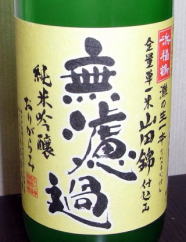 浜福鶴
灘の生一本
全量単一米
山田錦仕込み
無濾過
純米吟醸
おりがらみ